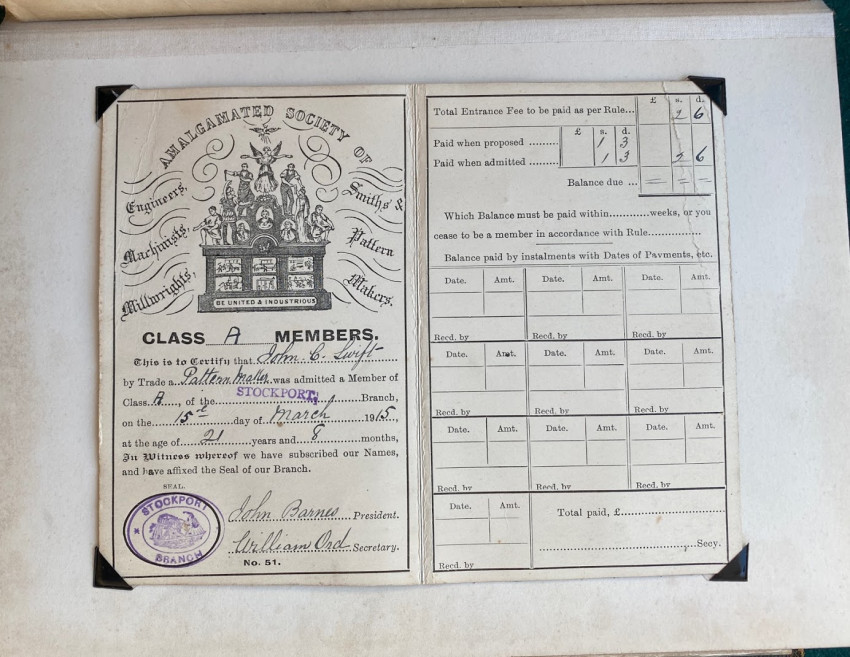 AMALGAMATED SOCIETY OF
Engineers,
Machinists,
Millwrights,
Smiths &
Pattern
Makers.
BE UNITED & INDUSTRIOUS
CLASS A MEMBERS.
This is to Certify that John C. Swift
by Trade a Pattern Maker was admitted a Member of
Class A, of the STOCKPORT Branch,
on the 15th day of March 1915,
at the age of 21 years and 8 months,
In Witness whereof we have subscribed our Names,
and have affixed the Seal of our Branch.
SEAL.
STOCKPORT
BRANCH
John Barnes President.
William Ord Secretary.
No. 51.
£ s. d.
Total Entrance Fee to be paid as per Rule... 2 6
£ s. d.
Paid when proposed ......... 1 3
Paid when admitted ......... 1 3 2 6
Balance due ... = = =
Which Balance must be paid within............weeks, or you
cease to be a member in accordance with Rule................
Balance paid by instalments with Dates of Payments, etc.
Date. Amt. Date. Amt. Date. Amt.
Recd. by Recd. by Recd. by
Date. Amt. Date. Amt. Date. Amt.
Recd. by Recd. by Recd. by
Date. Amt. Date. Amt. Date. Amt.
Recd. by Recd. by Recd. by
Date. Amt.
Total paid, £........................
................................................Secy.
Recd. by